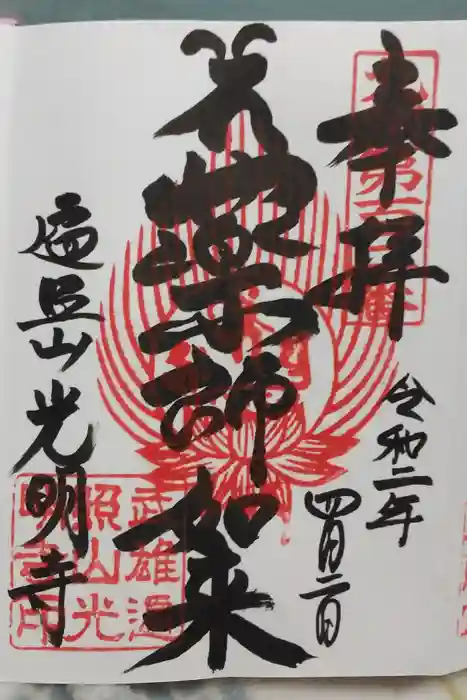 奉拝
令和二年
四月二日
藥師如来
遍照山光明寺
武雄遍
照山光
明寺印